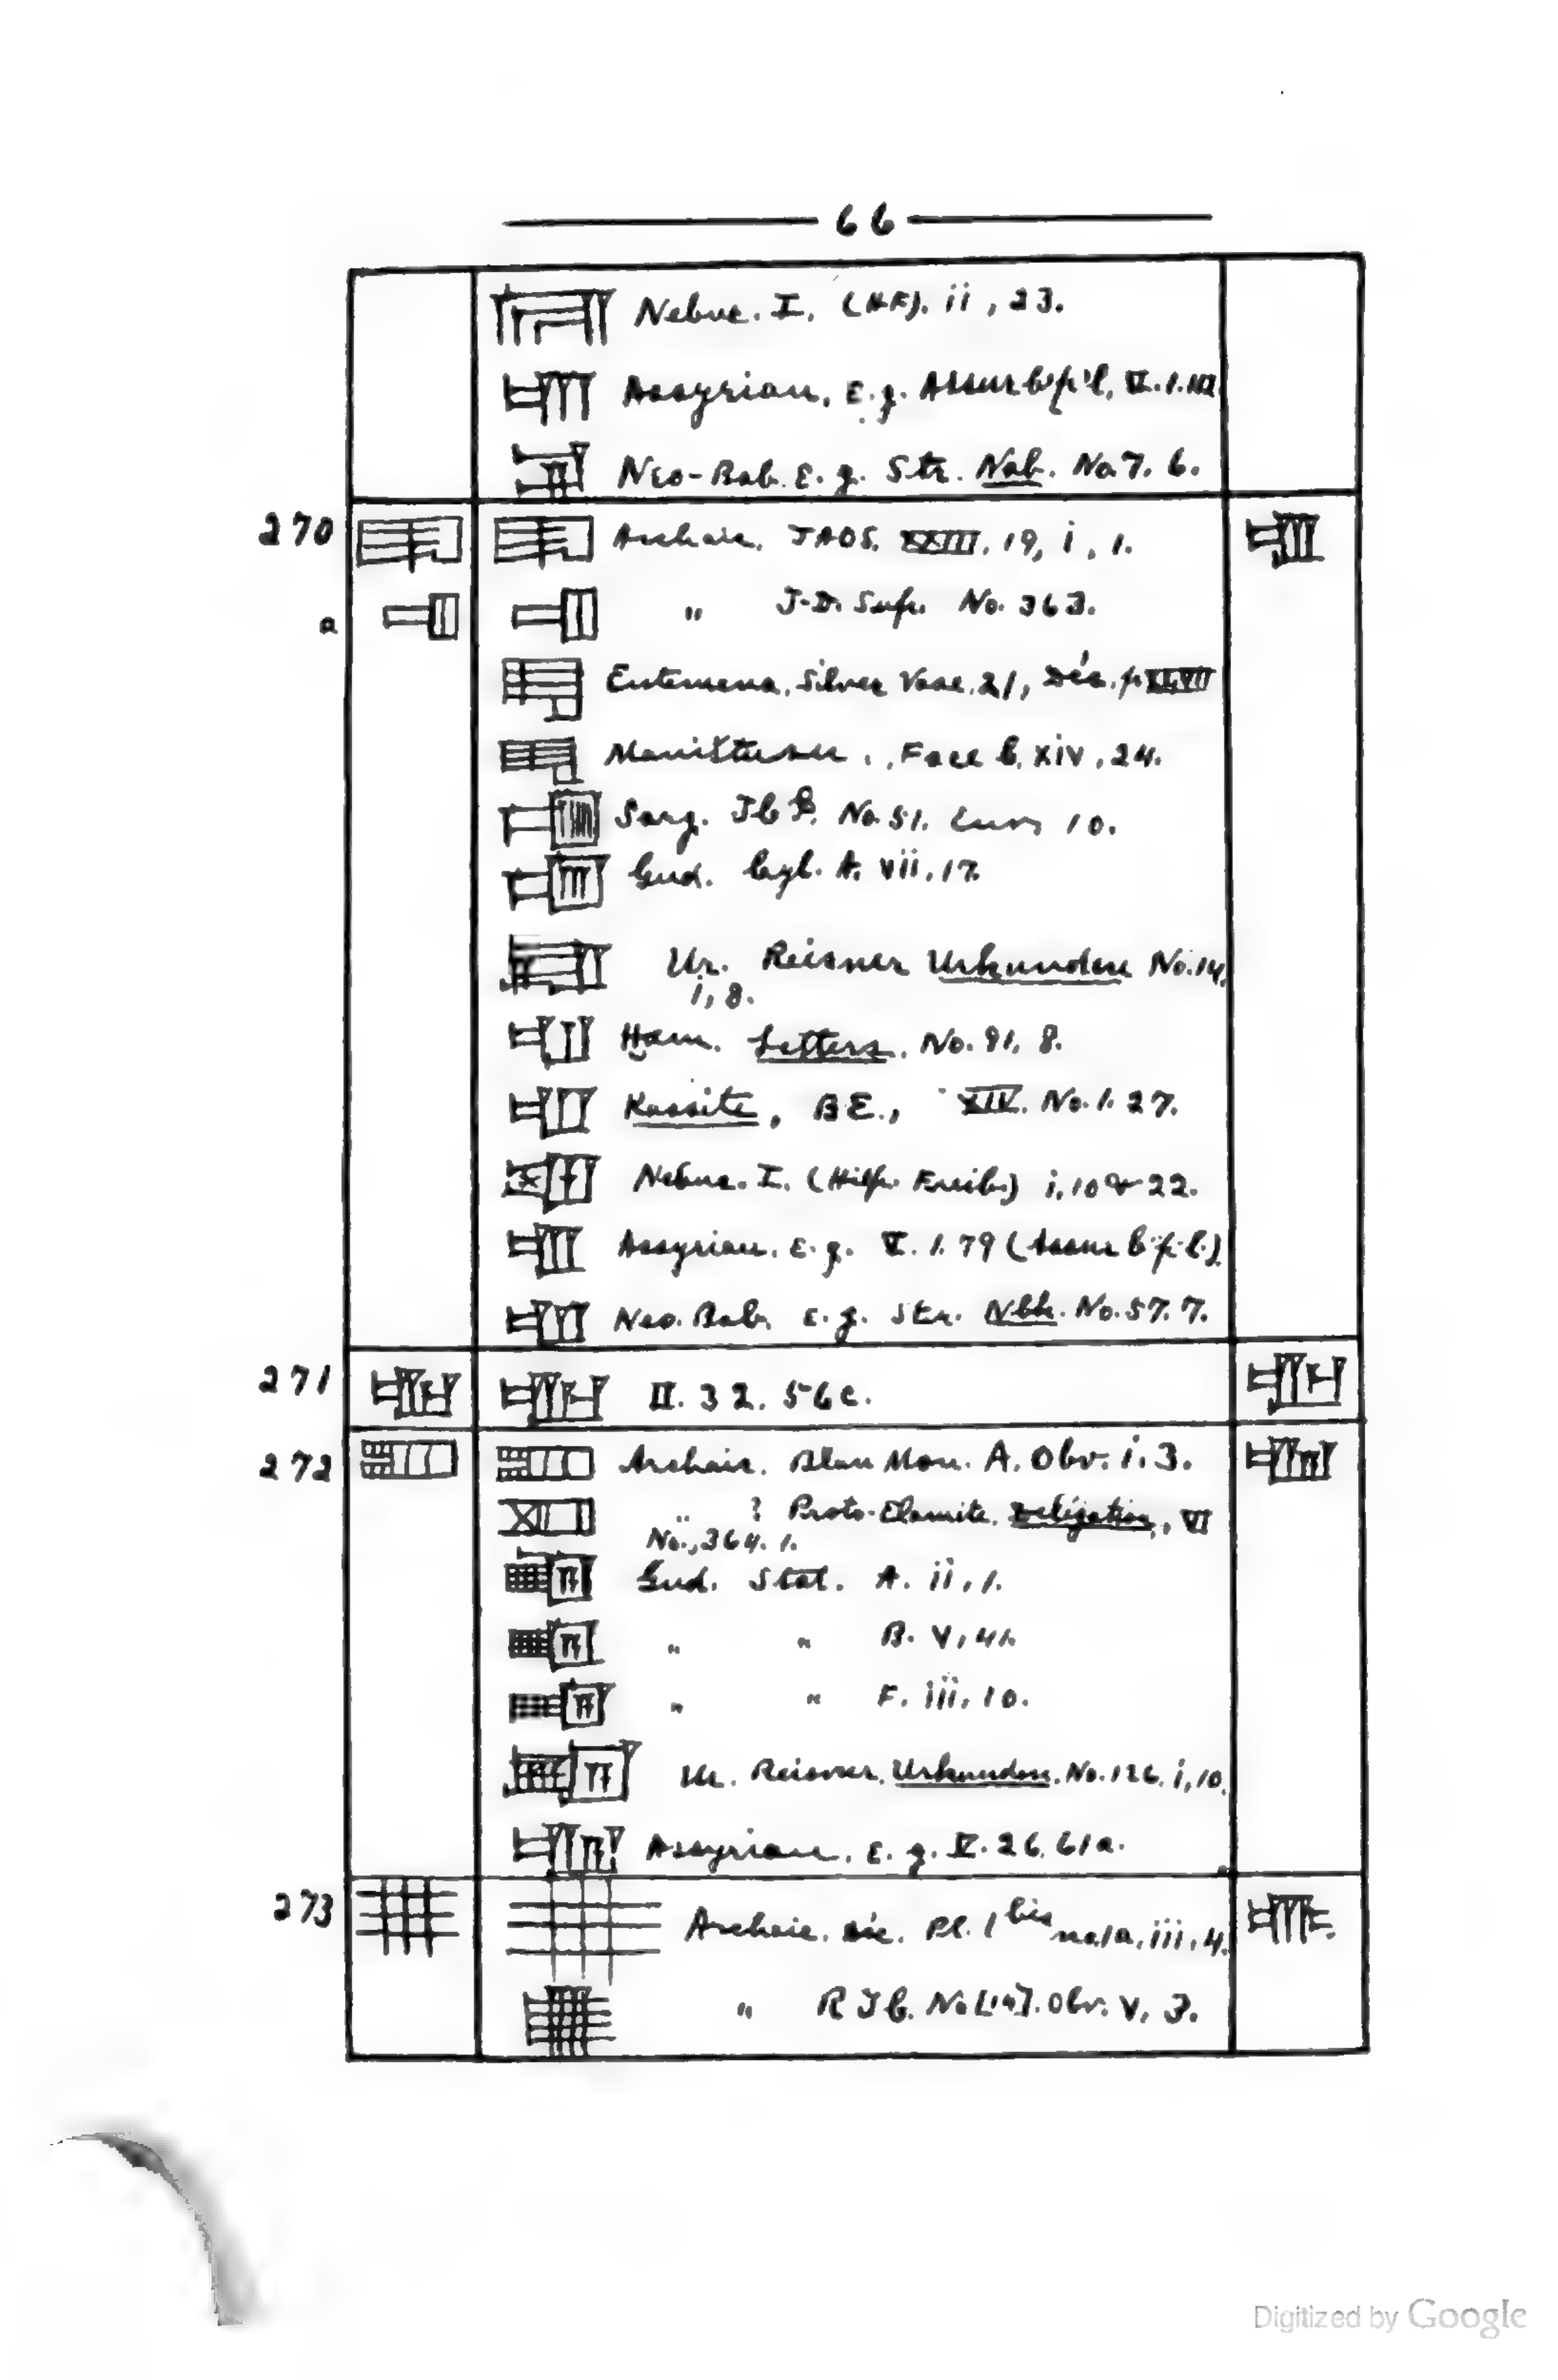 66
Nebuc. I, (HF). ii, 23.
Assyrian, E.g. Assurb'p'l, V. 1.
Neo-Bab. E.g. Str. Nab. No 7. 6.
270 Archaic. JAOS. XXIII. 19, i, 1.
a " J-D. Sup. No. 363.
Entemena, Silver Vase, 21, Déc. p. XLVII
Maništusu, Face b, xiv, 24.
Sarg. No. 51. 10.
Gud. Cyl. A. vii, 17.
Ur. Reisner Urkunden No. 14,
i, 8.
Ḫam. Letters. No. 81, 8.
Kassite, BE., XIV. No. 1. 27.
Nebuc. I. (Hilp. Freib.) i, 10 & 22.
Assyrian. E.g. V. 1. 79 (Assur b.p.l.)
Neo. Bab. E.g. Str. Nbk. No. 57. 7.
271 II. 32. 56c.
272 Archaic. Blau Mon. A. Obv. i. 3.
" ? Proto-Elamite. Délégation, VI
No., 364. 1.
Gud. Stat. A. ii, 1.
" " B. V, 41.
" " F. iii, 10.
Ur. Reisner. Urkunden. No. 126. i, 10.
Assyrian. E.g. V. 26. 61a.
273 Archaic. Déc. Pl. 1 bis no 1a, iii, 4.
" RTC. No [14]. Obv. V, 3.
Digitized by Google